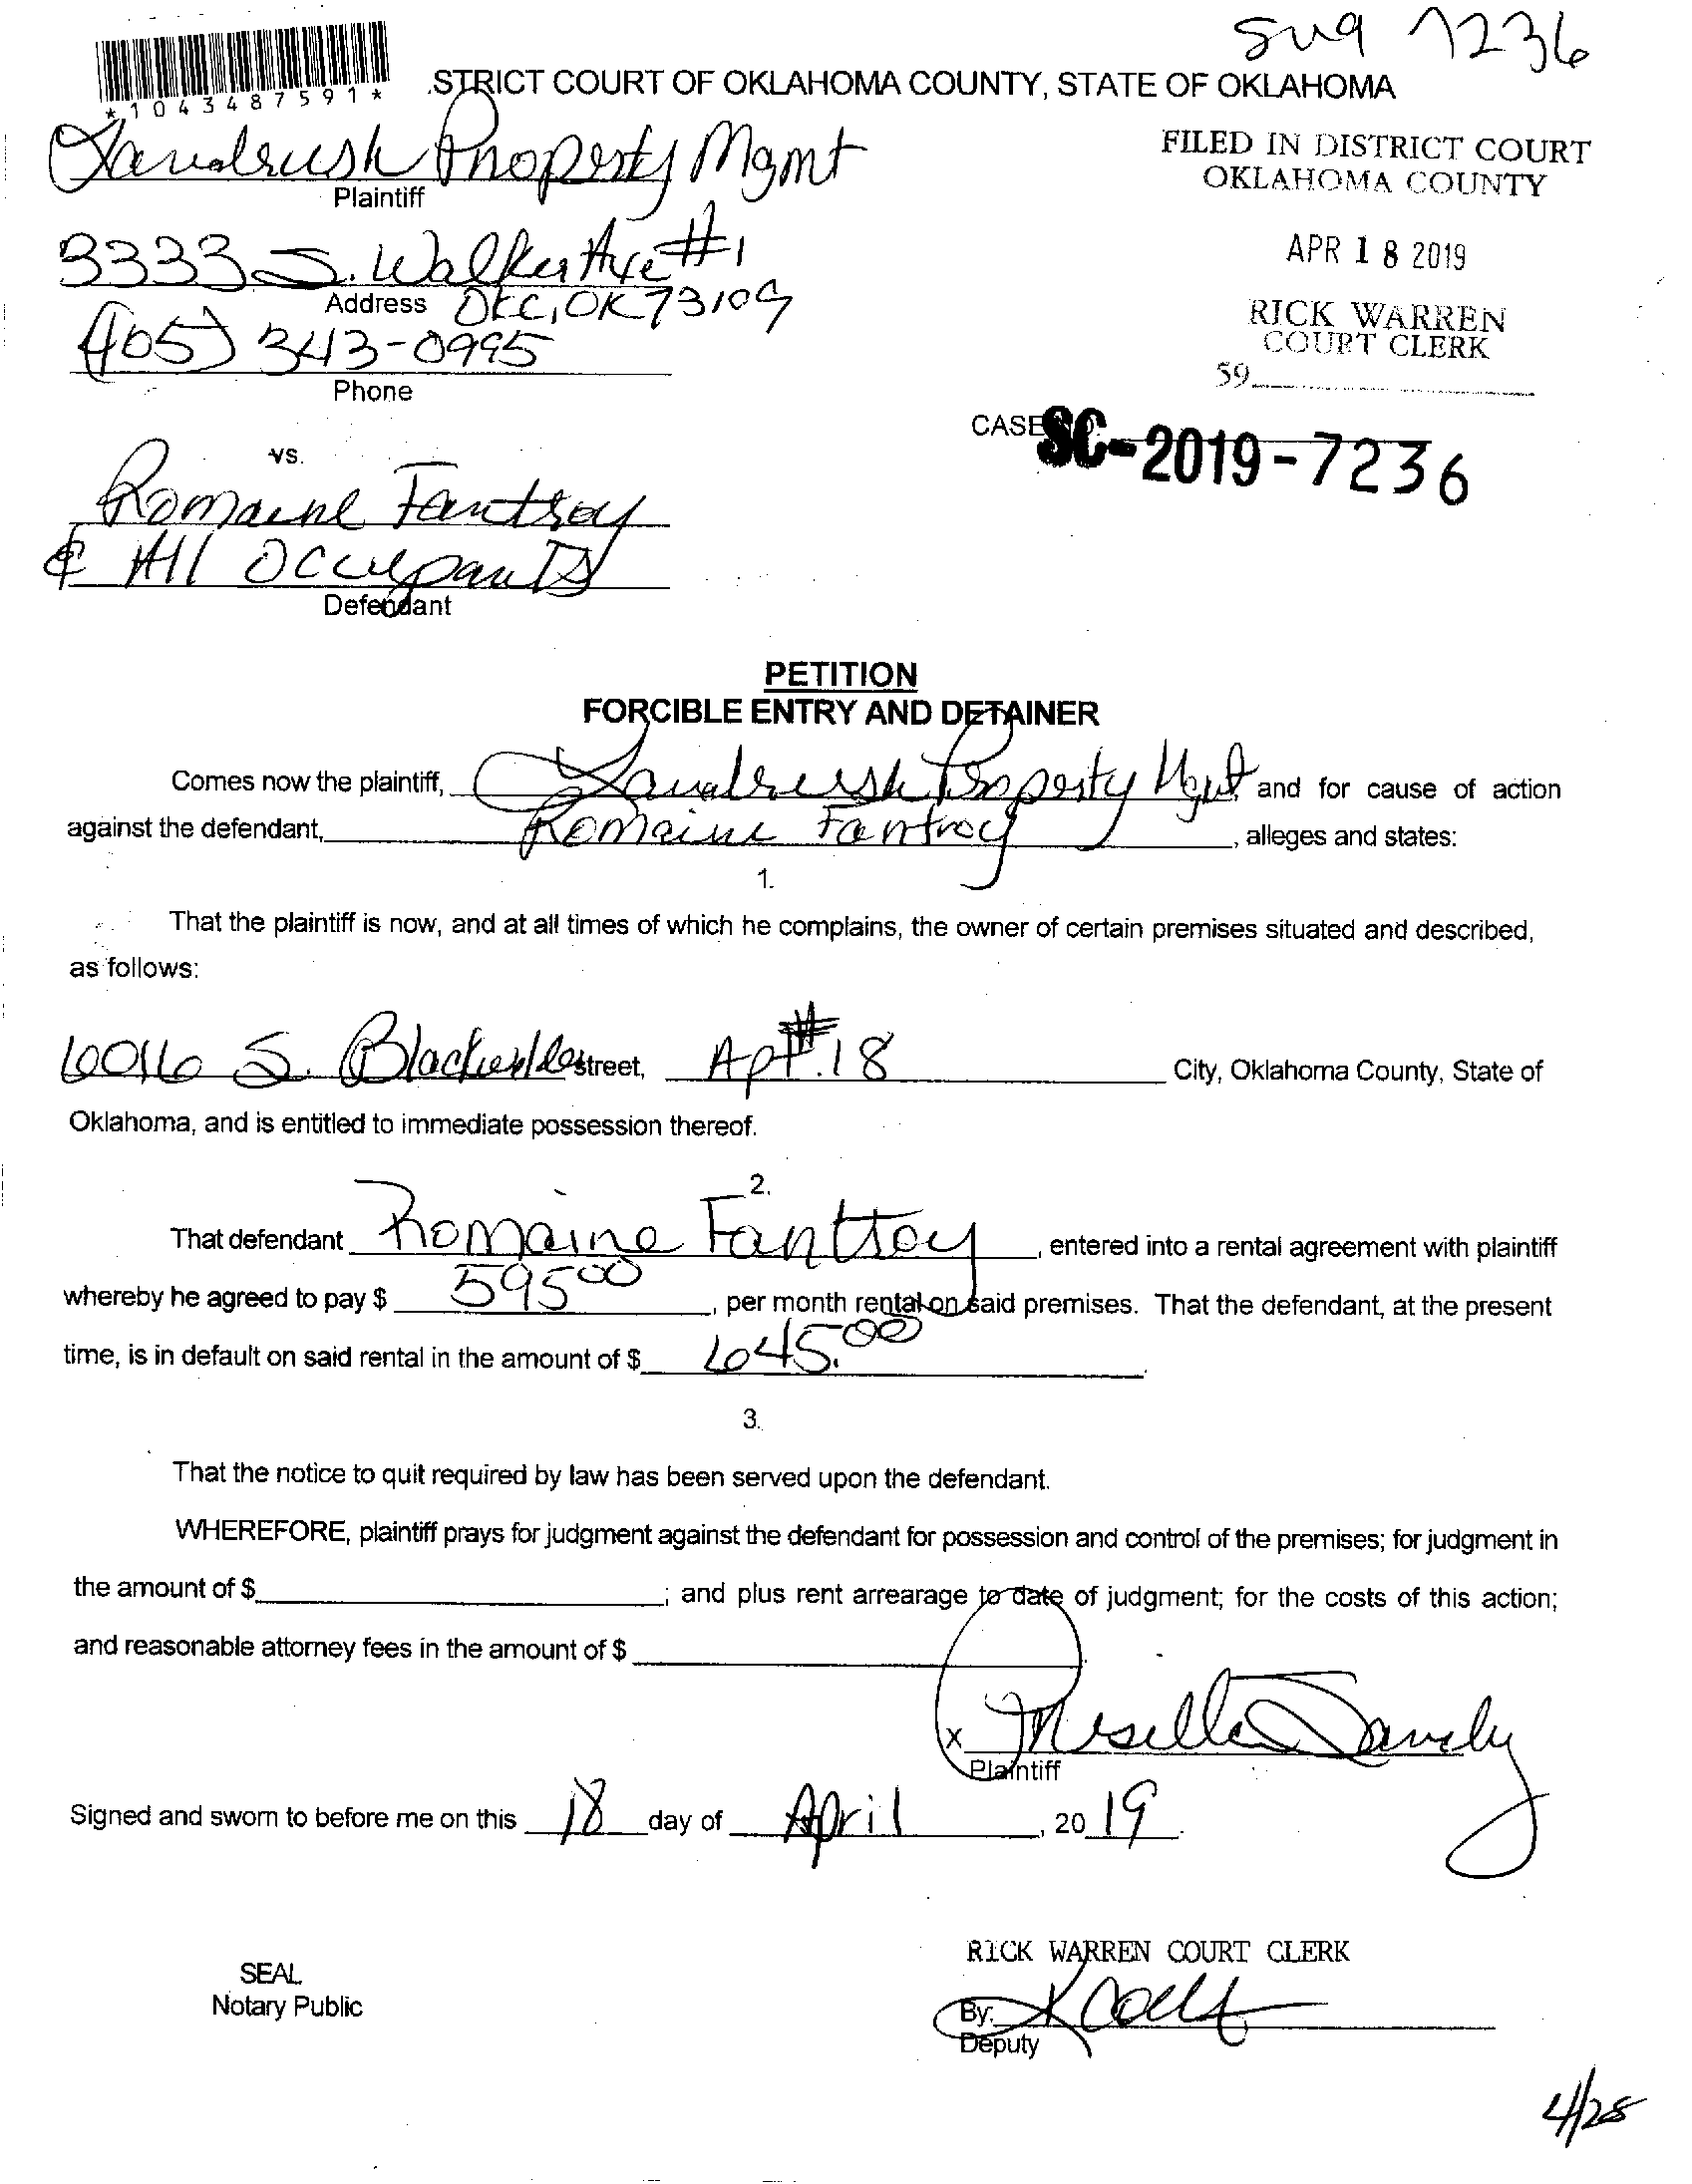 SC19 7236
*1043487591*
.STRICT COURT OF OKLAHOMA COUNTY, STATE OF OKLAHOMA
Landrush Property Mgmt
Plaintiff
FILED IN DISTRICT COURT
OKLAHOMA COUNTY
3333 S. Walker Ave #1
Address OKC, OK 73109
APR 18 2019
(405) 343-0995
Phone
RICK WARREN
COURT CLERK
59
CASE NO. SC-2019-7236
vs.
Romaine Fantroy
& All Occupants
Defendant
PETITION
FORCIBLE ENTRY AND DETAINER
Comes now the plaintiff, Landrush Property Mgmt and for cause of action
against the defendant, Romaine Fantroy, alleges and states:
1.
That the plaintiff is now, and at all times of which he complains, the owner of certain premises situated and described,
as follows:
6016 S. Blackwelder street, Apt #.18 City, Oklahoma County, State of
Oklahoma, and is entitled to immediate possession thereof.
2.
That defendant Romaine Fantroy, entered into a rental agreement with plaintiff
whereby he agreed to pay $ 595.00, per month rental on said premises. That the defendant, at the present
time, is in default on said rental in the amount of $ 645.00.
3.
That the notice to quit required by law has been served upon the defendant.
WHEREFORE, plaintiff prays for judgment against the defendant for possession and control of the premises; for judgment in
the amount of $ ; and plus rent arrearage to date of judgment; for the costs of this action;
and reasonable attorney fees in the amount of $
x
Plaintiff
Signed and sworn to before me on this 18 day of April, 20 19.
RICK WARREN COURT CLERK
SEAL
Notary Public
By:
Deputy
4/25